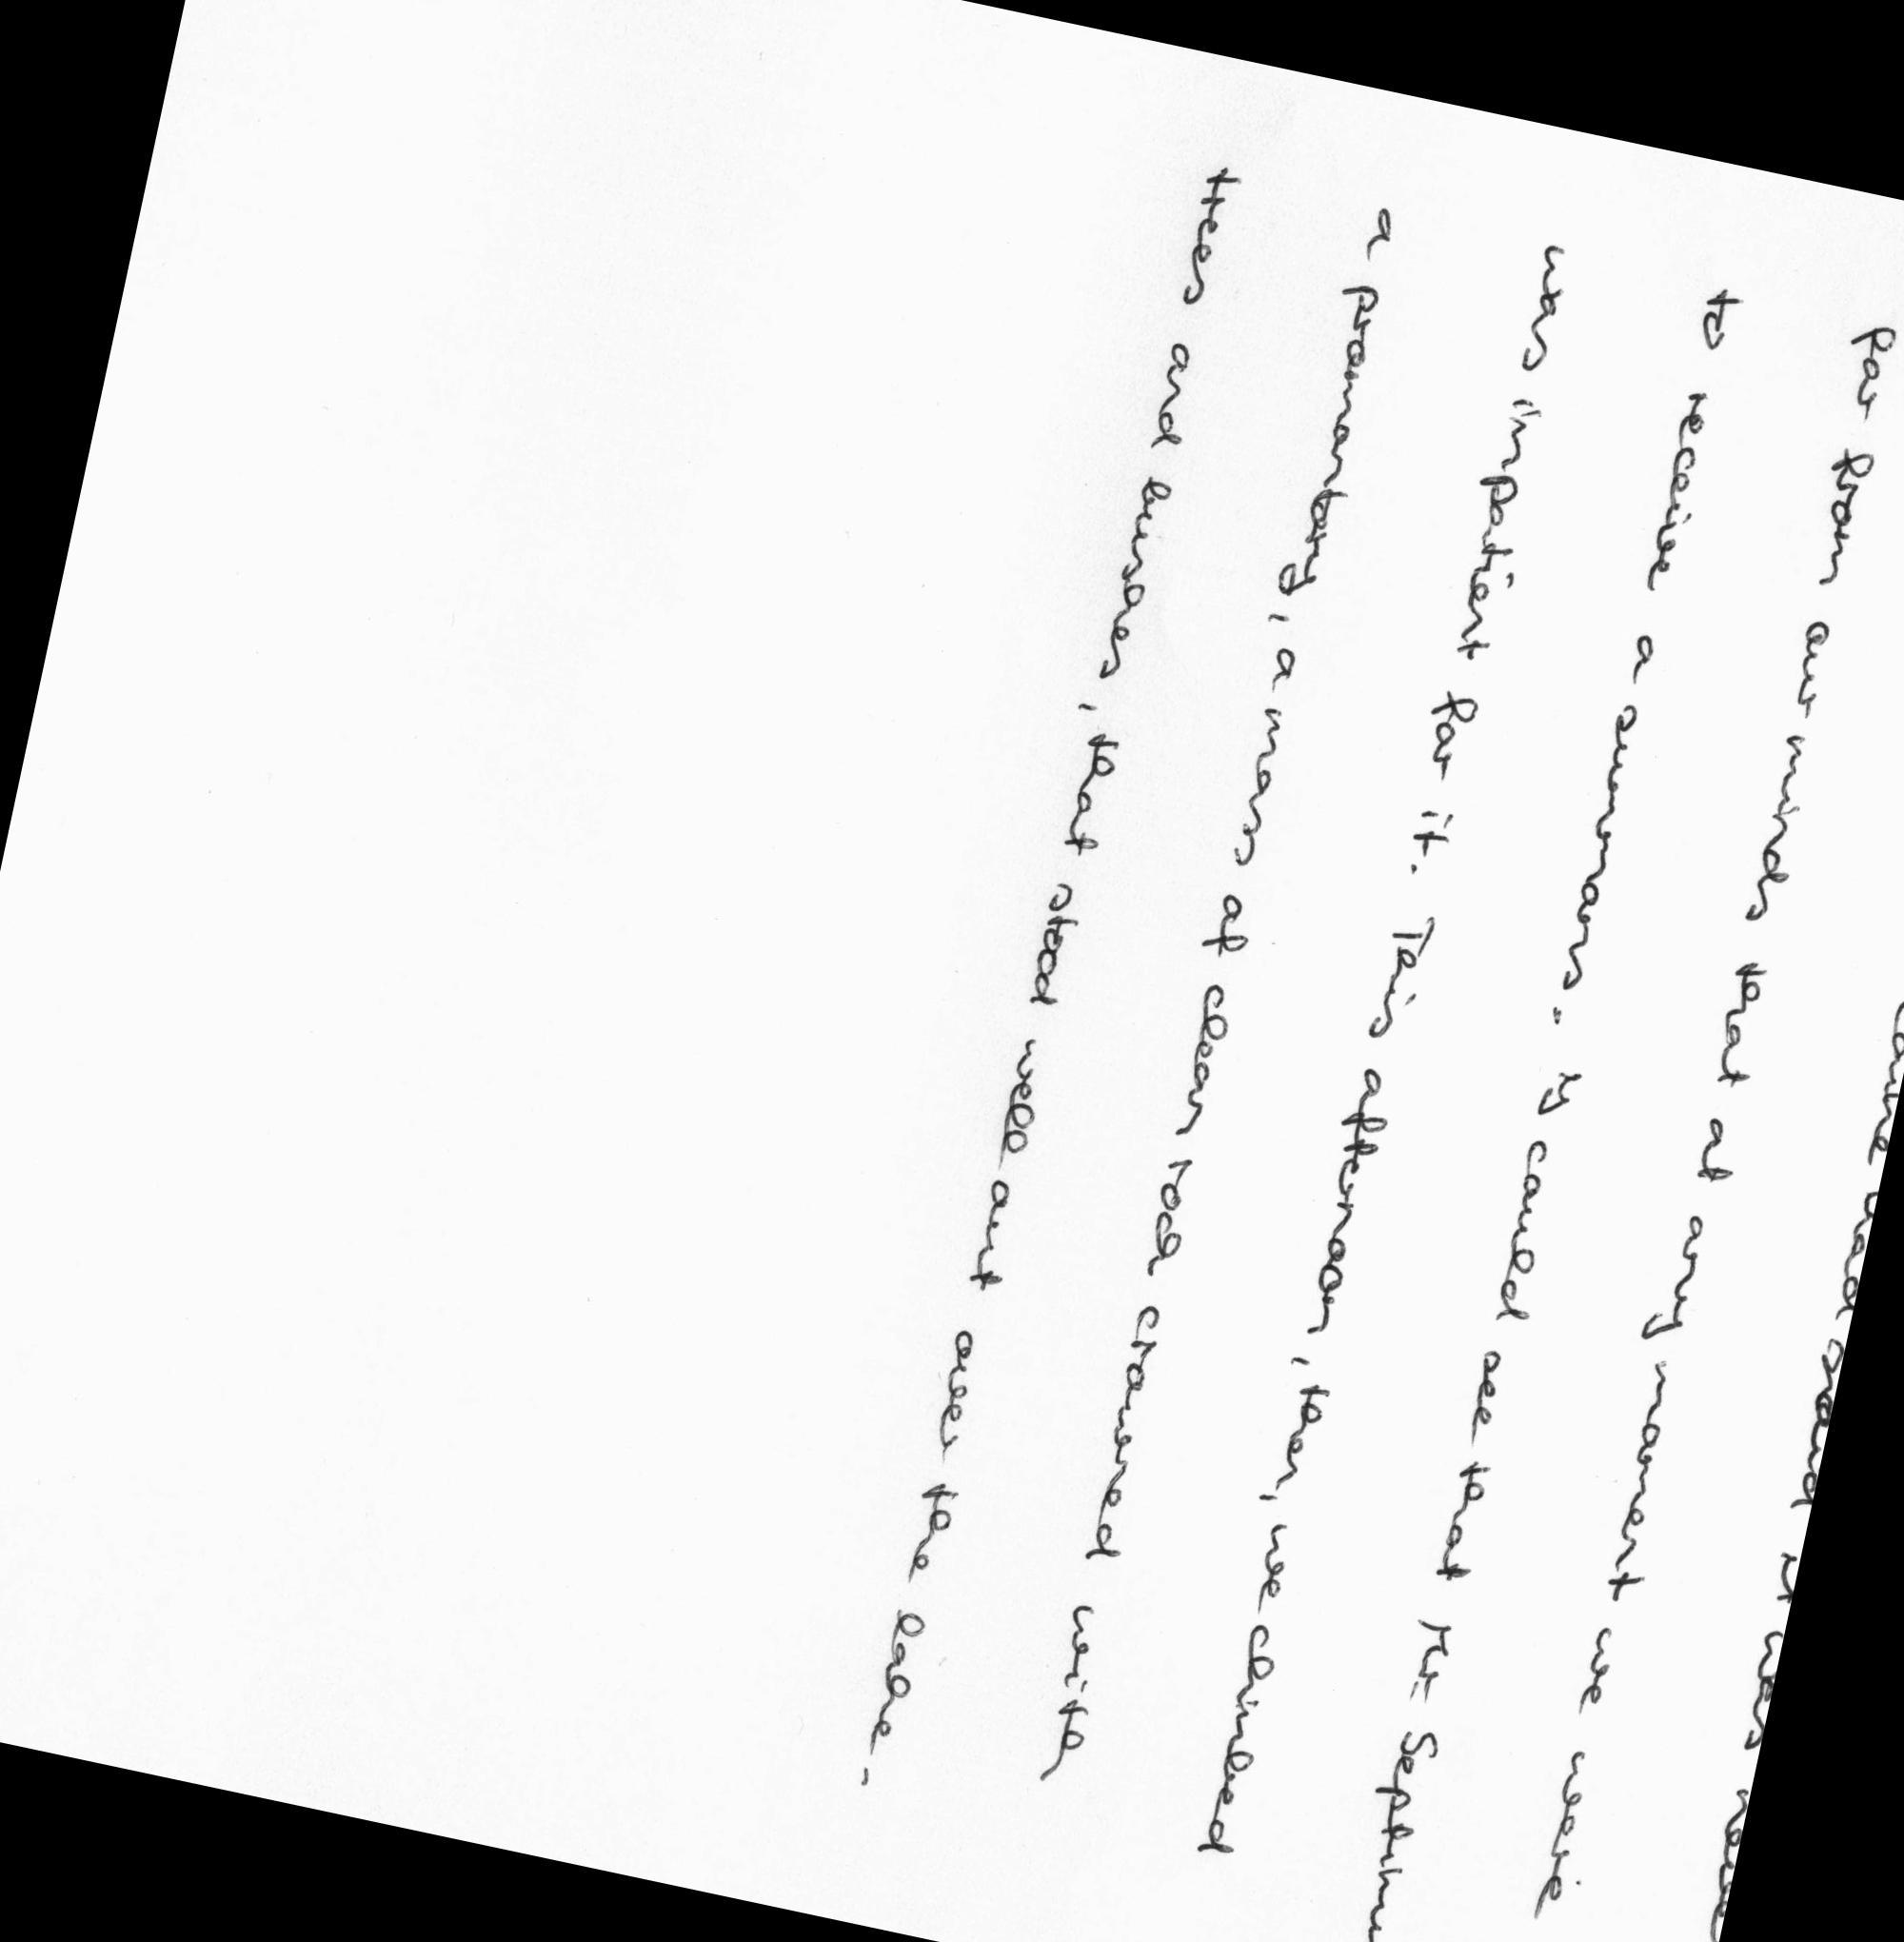 came and It was never
far from our minds that at any moment we were
to receive a summons. I could see that Mr. Septimu
was impatient for it. This afternoon, then, we climbed
a promontory, a mass of clean rock crowned with
trees and bushes, that stood well out over the lake.